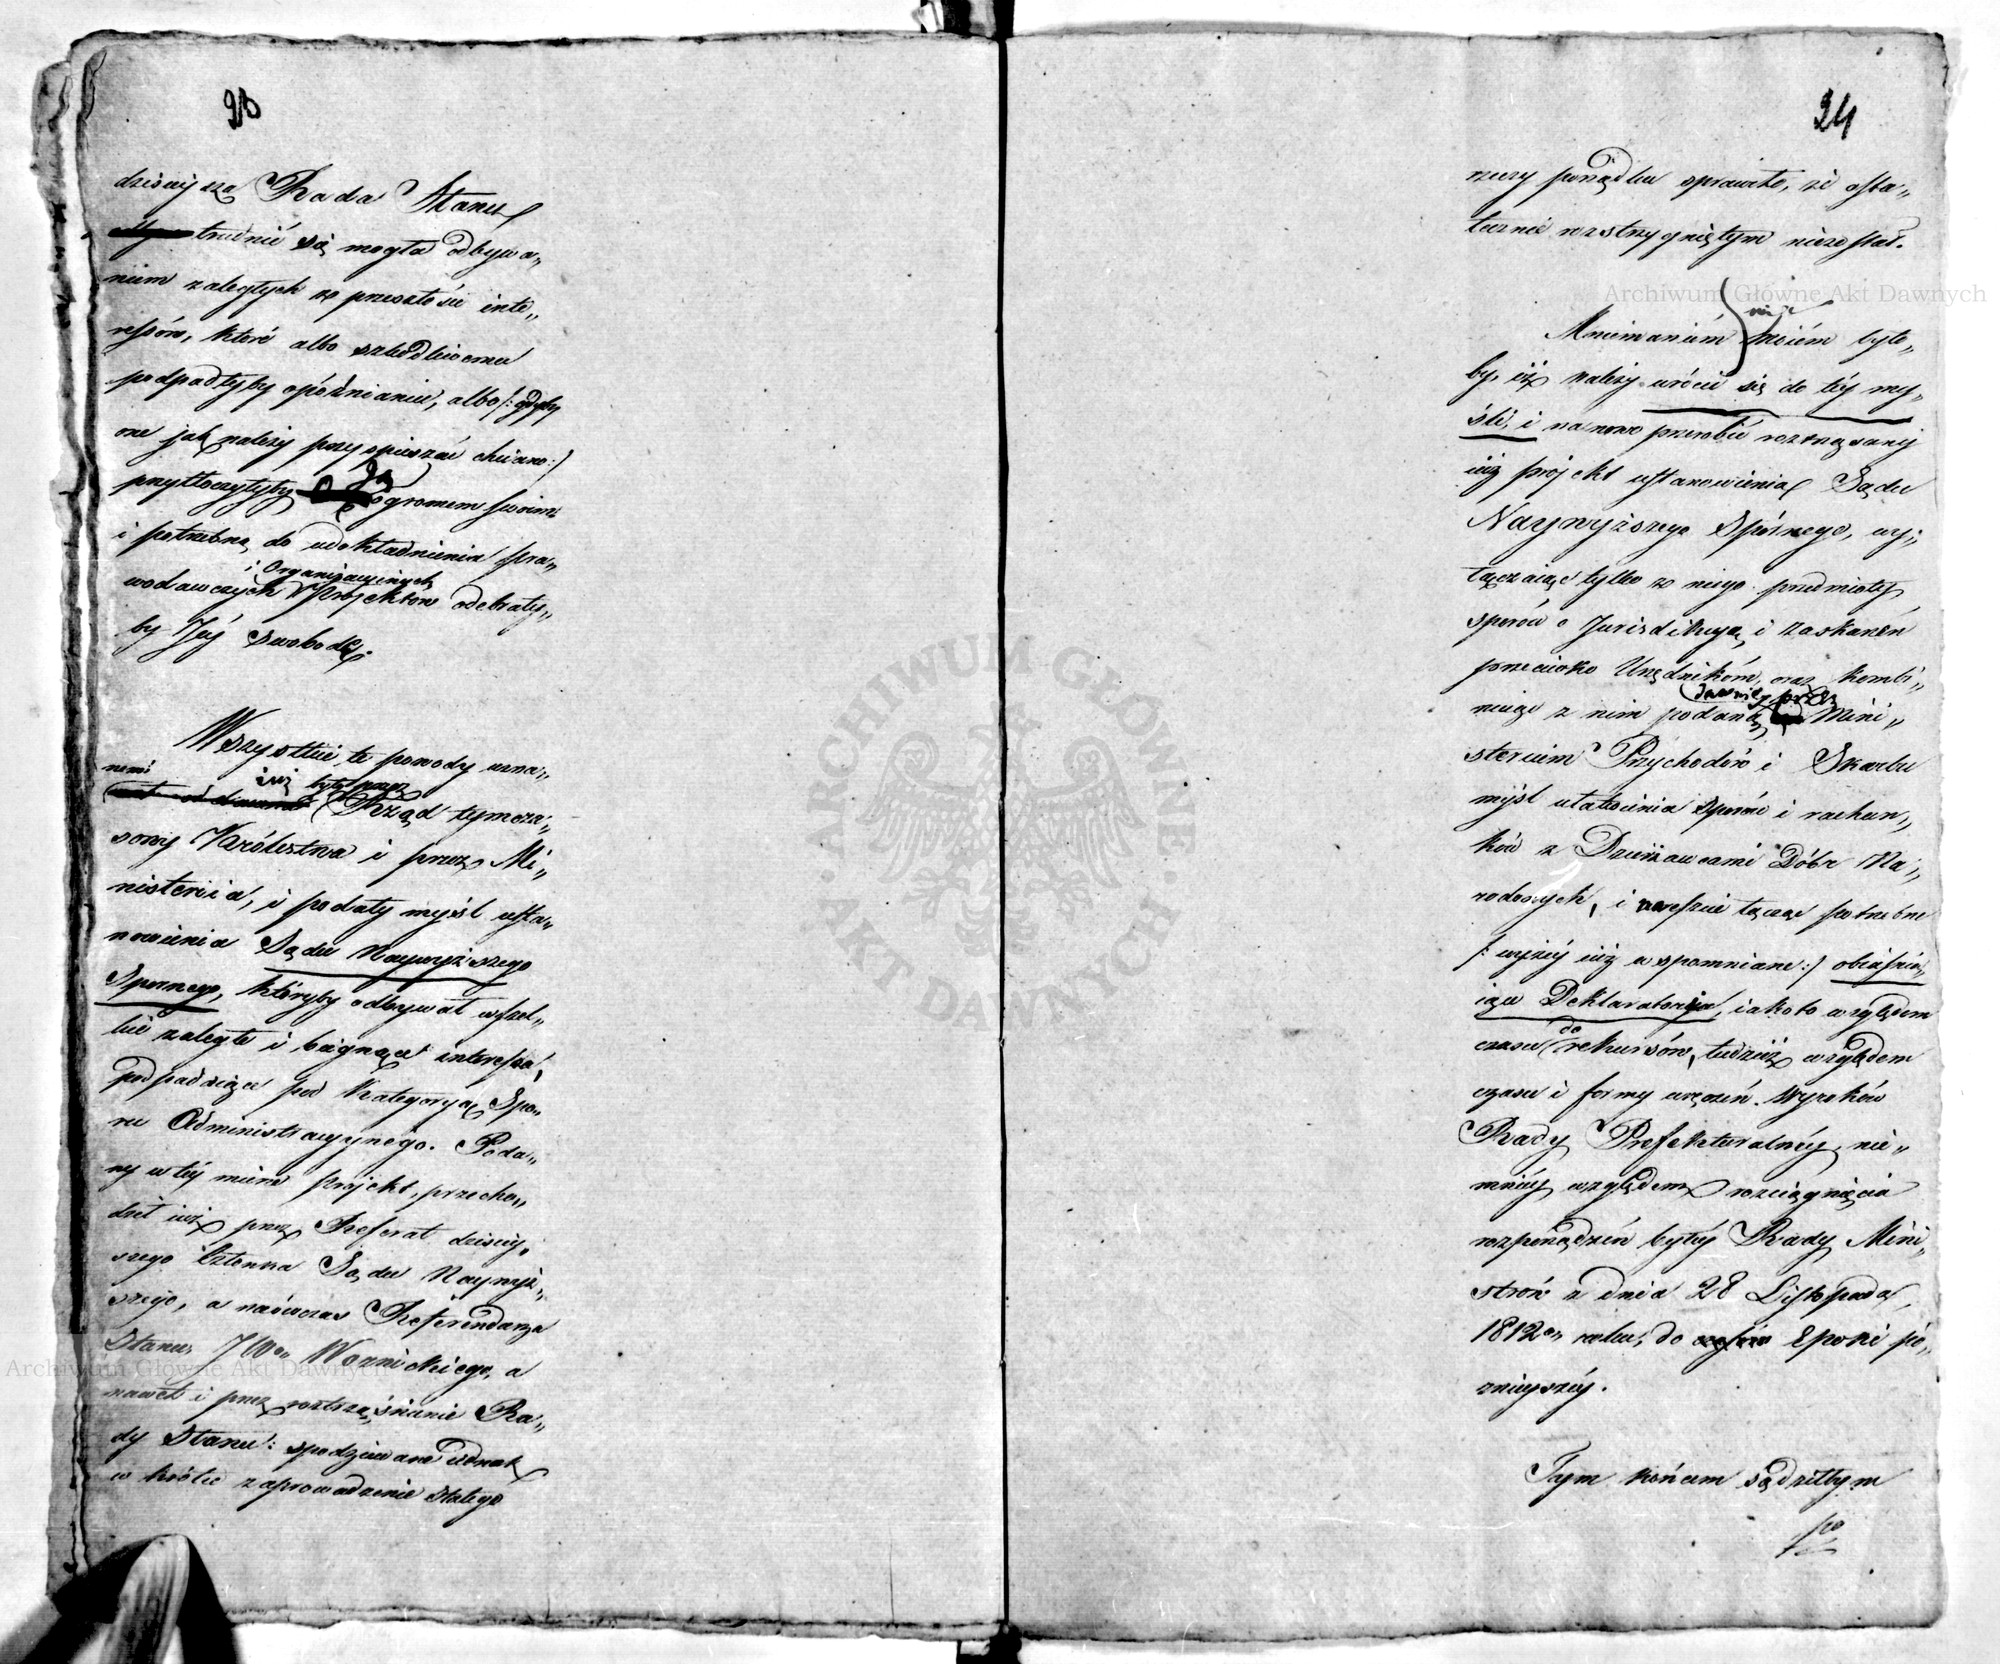 93
dzisieysza Rada Stanu
trudnić się mogła odbywa„
niem zaległych w przeszłości inte„
ressów, które albo szkodliwemu
podpadłyby opóźnianiu, albo /: gdyby
one jak należy przyspieszać chciano :/
przytłoczyłyby Ją ogromem swoim
i potrzebną do udokładnienia pra„
i Organizacyinych
wodawczych Projektów odebrały„
by Jéy swobodę.
Wszystkie te powody uzna„
nemi już były przez
Rząd tymcza„
sowy Królestwa i przez Mi„
nisteria, i podały myśl usta„
nowienia Sądu Naywyższego
Spornego, któryby odbywał wszel„
kie zaległe i bieżące interessa,
podpadaiące pod Kategoryą Spo„
ru Administracyynego. Poda„
ny w téy mierze projekt, przecho„
dził już przez Referat dzisiey„
szego Członka Sądu Naywyż„
szego, a naówczas Referendarza
Stanu, JWo Woznickiego, a
nawet i przez roztrząśnienie Ra„
dy Stanu: spodziewane iednak
w krótce zaprowadzenie stałego
94
rzeczy porządku sprawiło, że osta„
tecznie rozstrzygniętym niezostał.
Archiwum Główne Akt Dawnych
Mniemaniem moiém było„
by, iż należy wrócić się do téy my„
śli, i na nowo przerobić roztrząsany
iuż projekt ustanowienia Sądu
Naywyższego Spornego, wy„
łączaiąc tylko z niego przedmioty
sporów o Jurisdikcyą, i zaskarżeń
przeciwko Urzędników, oraz kombi„
dawniey przez
nuiąc z nim podaną Mini„
sterium Przychodów i Skarbu
myśl ułatwienia sporów i rachun„
ków z Dzierżawcami Dóbr Na„
rodowych, i wreszcie łącząc potrzebne
/: wyżéy iuż wspomniane :/ obiaśnia„
iące Deklaratoria, iakoto względem
do
czasu rekursów, tudzież względem
czasu i formy wręczeń Wyroków
Rady Prefekturalnéy, nie„
mniéy względem rozciągnięcia
rozporządzeń byłéy Rady Mini„
strów z dnia 28 Listopada,
1812o roku, do Epoki pó„
źnieyszéy.
Tym końcem sądziłbym
po
Archiwum Główne Akt Dawnych
ARCHIWUM GŁÓWNE AKT DAWNYCH